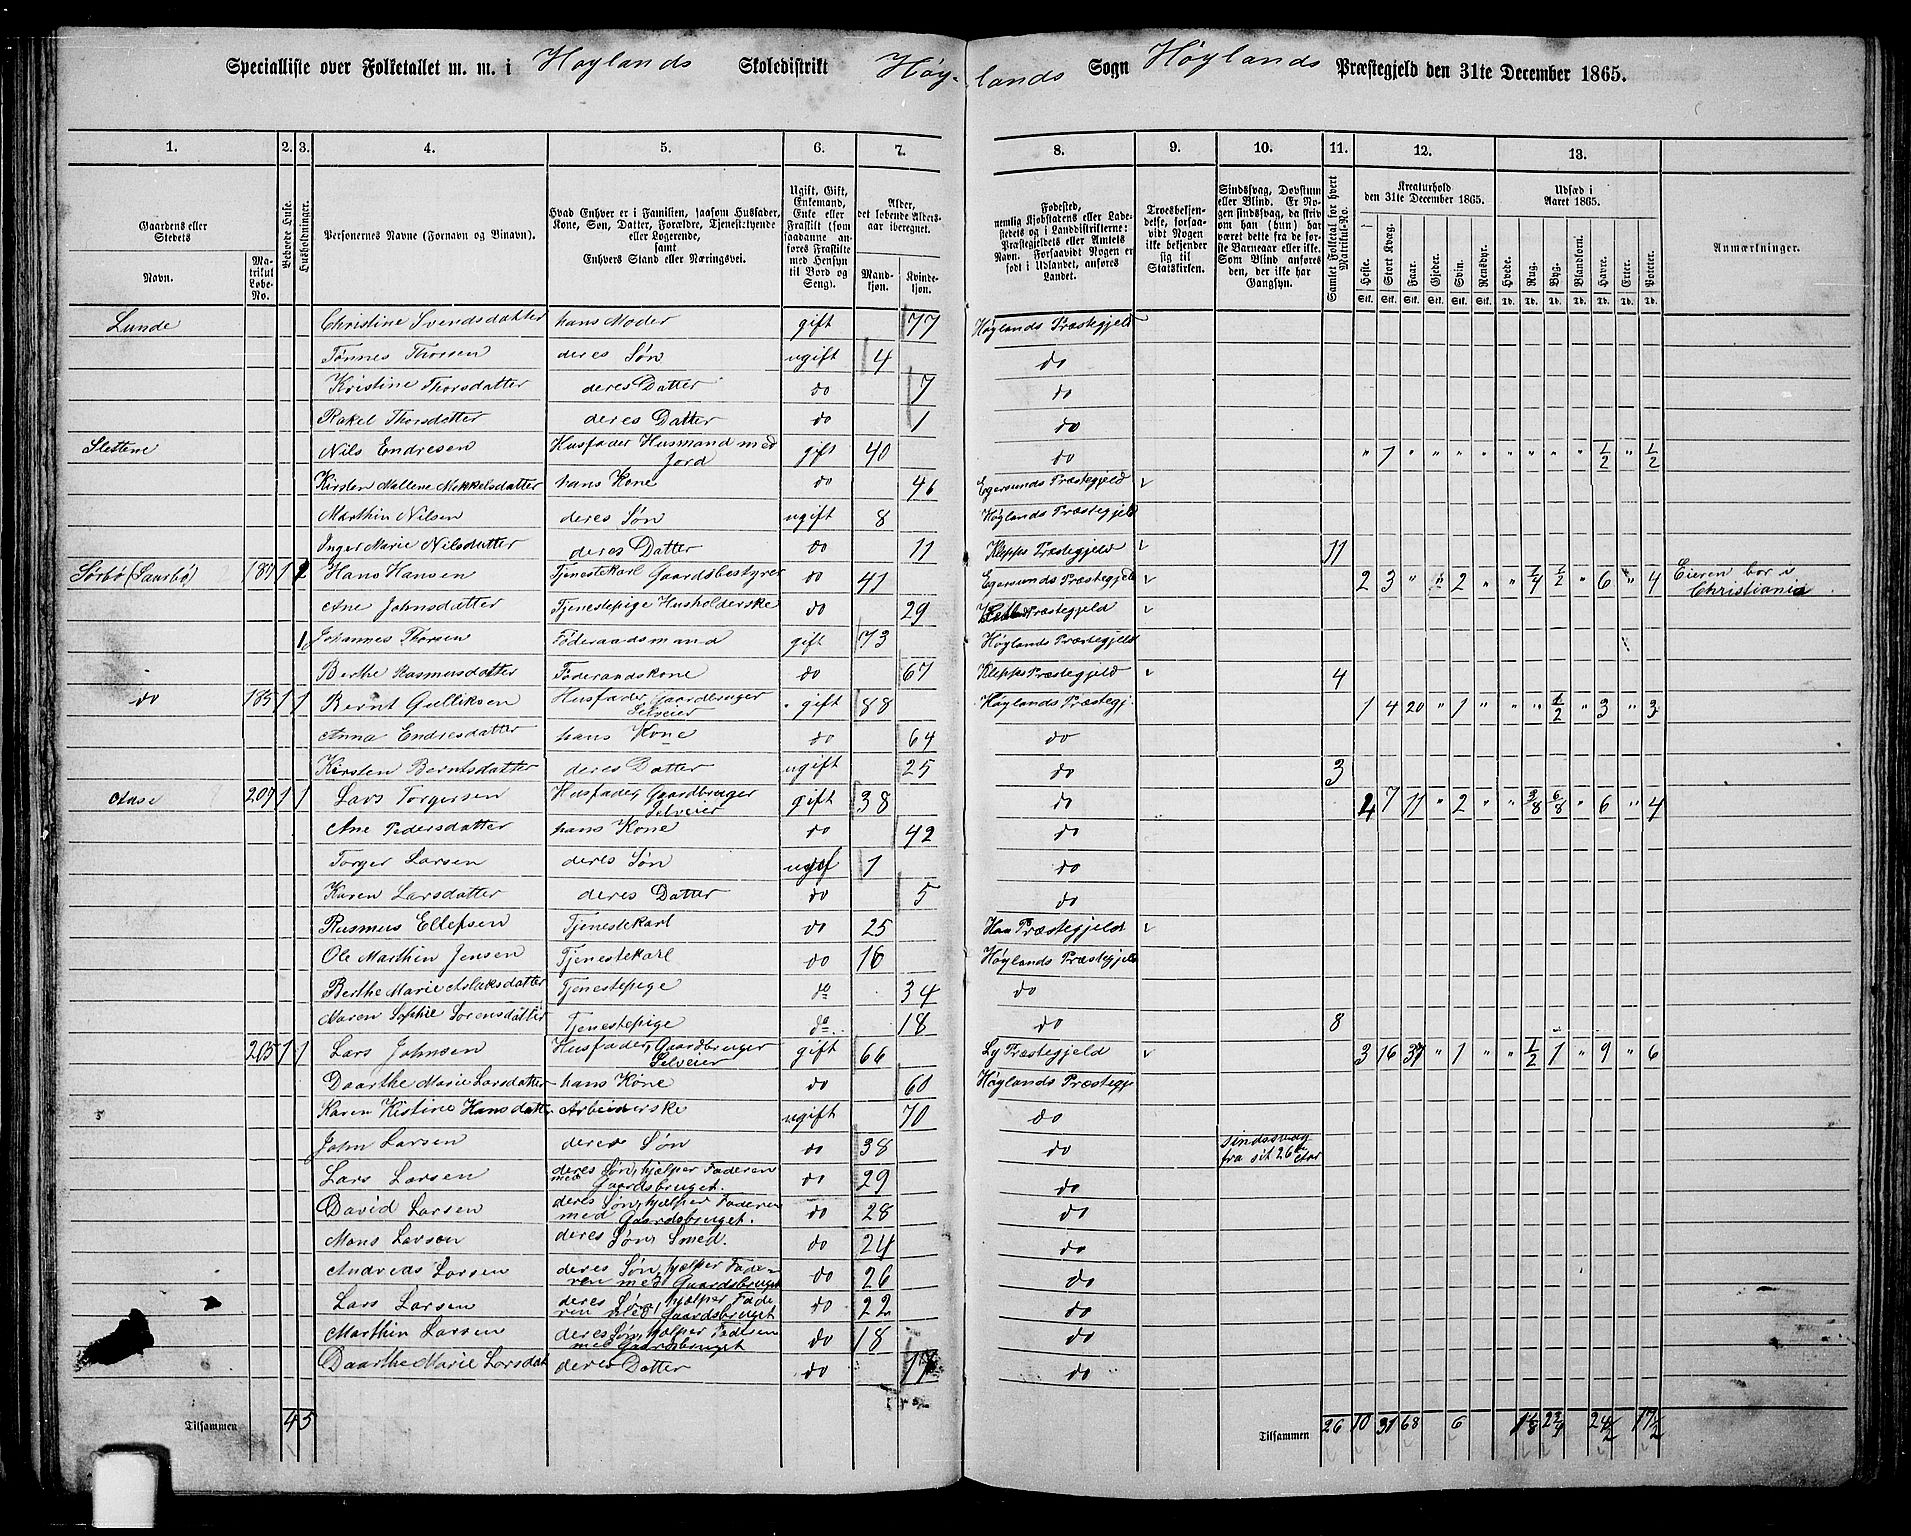 Specialliste over Folketallet m. m. i Høylands Skoledistrikt Høylands Sogn Høylands Præstegjeld den 31te December 1865.
1. 2. 3. 4. 5. 6. 7. 8. 9. 10. 11. 12. 13.
Gaardens eller Stedets
Navn. Matrikul Løbe-No.
Beboede Huse.
Husholdninger.
Personernes Navne (Fornavn og Binavn).
Hvad Enhver er i Familien, saasom Husfader, Kone, Søn, Datter, Forældre, Tjenestetyende eller Logerende, samt Enhvers Stand eller Næringsvei.
Ugift, Gift, Enkemand, Enke eller Fraskilt (som saadanne anføres Fraskilte med Hensyn til Bord og Seng).
Alder, det løbende Aldersaar iberegnet.
Mandkjøn. Kvindekjøn.
Fødested, nemlig Kjøbstadens eller Ladestedets og i Landdistrikterne: Præstegjeldets eller Amtets Navn. Forsaavidt Nogen er født i Udlandet, anføres Landet.
Troesbekjendelse, forsaavidt Nogen ikke bekjender sig til Statskirken.
Sindssvag, Døvstum eller Blind. Er Nogen sindssvag, da skrives, om han (hun) har været dette fra de første Barneaar eller ikke. Som Blind anføres den, der ikke har Gangsyn.
Samlet Folketal for hvert Matrikul-No.
Kreaturhold den 31te December 1865.
Heste. Stort Kvæg. Faar. Gjeder. Svin. Rensdyr.
Stk. Stk. Stk. Stk. Stk. Stk.
Udsæd i Aaret 1865.
Hvede. Rug. Byg. Blandkorn. Havre. Erter. Poteter.
Td. Td. Td. Td. Td. Td. Td.
Anmærkninger.
Lunde Christine Svendsdatter hans Moder gift 77 Høylands Præstegjeld
Tønnes Thorsen deres Søn ugift 4 do
Kristine Thorsdatter deres Datter do 7 do
Rakel Thorsdatter deres Datter do 1 do
Slettene Nils Endresen Husfader Husmand med Jord gift 40 do " 1 " " " " " " " " 1/2 " 1/2
Kirsten Mallene Mikkelsdatter hans Kone do 46 Egersunds Præstegjeld
Marthin Nilsen deres Søn ugift 8 Høylands Præstegjeld
Inger Marie Nilsdatter deres Datter do 11 Klepps Præstegjeld 11
Sørbø (Saurbø) 187 1 2 Hans Hansen Tjenestekarl Gaardsbestyrer do 41 Egersunds Præstegjeld 2 3 " " 2 " " 1/4 1/2 " 6 " 4 Eieren bor i Christiania
Ane Johnsdatter Tjenestepige Husholderske do 29 Præstegjeld
Johannes Thorsen Føderaadsmand gift 73 Høylands Præstegjeld
Berthe Rasmusdatter Føderaadskone do 67 Klepps Præstegjeld 4
do 185 1 1 Bernt Gulliksen Husfader, Gaardbruger Selveier gift 88 Høylands Præstegj. 1 4 20 " 1 " " " 1/2 " 3 " 3
Anna Endresdatter hans Kone do 64 do
Kirsten Berntsdatter deres Datter ugift 25 do 3
Aase 207 1 1 Lars Torgersen Husfader, Gaardbruger Selveier gift 38 do 4 7 11 " 2 " " 3/8 6/8 " 6 " 4
Ane Pedersdatter hans Kone do 42 do
Torger Larsen deres Søn ugift 1 do
Karen Larsdatter deres Datter do 5 do
Rasmus Ellefsen Tjenestekarl do 25 Haa Præstegjeld
Ole Marthin Jensen Tjenestekarl do 16 Høylands Præstegjeld
Berthe Marie Aslaksdatter Tjenestepige do 34 do
Maren Sophie Sørensdatter Tjenestepige do 18 do 8
205 1 1 Lars Johnsen Husfader, Gaardbruger Selveier gift 66 Ly Præstegjeld 3 16 37 " 1 " " 1/2 1 " 9 " 6
Daarthe Marie Larsdatter hans Kone do 60 Høylands Præstegj
Karen Kistine Hansdatter Arbeiderske ugift 70 do
John Larsen deres Søn do 38 do Sindssvag fra sit 26de Aar
Lars Larsen deres Søn, hjælper Faderen med Gaardsbruget. do 29 do
David Larsen deres Søn, hjælper Faderen med Gaardsbruget. do 28 do
Mons Larsen deres Søn, Smed. do 24 do
Andreas Larsen deres Søn, hjælper Faderen med Gaardsbruget do 26 do
Lars Larsen deres Søn, hjælper Faderen med Gaardsbruget do 22 do
Marthin Larsen deres Søn, hjælper Faderen med Gaardsbruget do 18 do
Daarthe Marie Larsdat deres Datter do 17 do
Tilsammen 4 5 Tilsammen 26 10 31 68 6 24 1/2 17 1/2